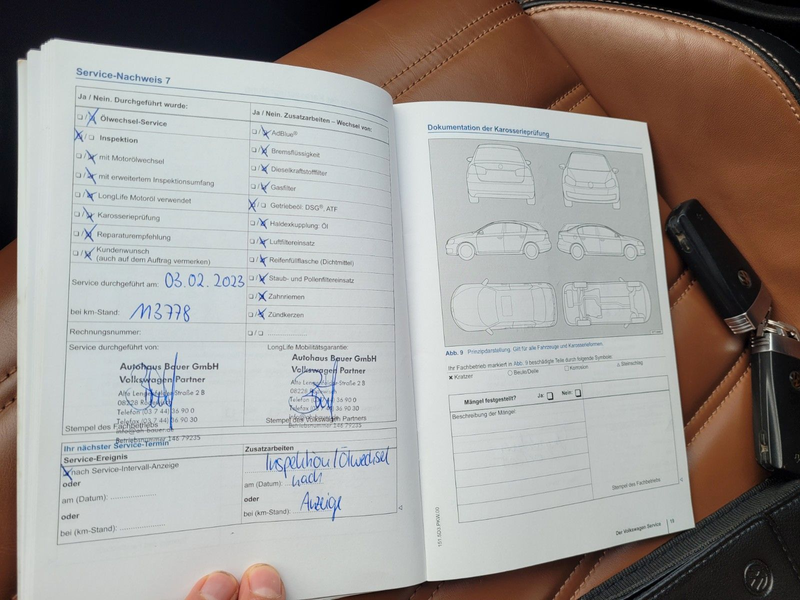 Service-Nachweis 7
Ja / Nein. Durchgeführt wurde:
Ölwechsel-Service
Inspektion
mit Motorölwechsel
mit erweitertem Inspektionsumfang
LongLife Motoröl verwendet
Karosserieprüfung
Reparaturempfehlung
Kundenwunsch
(auch auf dem Auftrag vermerken)
Service durchgeführt am: 03.02.2023
bei km-Stand: 113778
Rechnungsnummer:
Service durchgeführt von:
Autohaus Bauer GmbH
Volkswagen Partner
Telefon (03 7 44) 36 90 0
Telefax (03 7 44) 36 90 30
Betriebsnummer 146 79235
Stempel des Fachbetriebs
Ja / Nein. Zusatzarbeiten – Wechsel von:
AdBlue®
Bremsflüssigkeit
Dieselkraftstofffilter
Gasfilter
Getriebeöl: DSG®, ATF
Haldexkupplung: Öl
Luftfiltereinsatz
Reifenfüllflasche (Dichtmittel)
Staub- und Pollenfiltereinsatz
Zahnriemen
Zündkerzen
LongLife Mobilitätsgarantie:
Autohaus Bauer GmbH
Volkswagen Partner
Stempel des Volkswagen Partners
Betriebsnummer 146 79235
Ihr nächster Service-Termin
Service-Ereignis
nach Service-Intervall-Anzeige
oder
am (Datum):
oder
bei (km-Stand):
Zusatzarbeiten
Inspektion/Ölwechsel
am (Datum): nach
oder
Anzeige
bei (km-Stand):
Dokumentation der Karosserieprüfung
Abb. 9 Prinzipdarstellung. Gilt für alle Fahrzeuge und Karosserieformen.
Ihr Fachbetrieb markiert in Abb. 9 beschädigte Teile durch folgende Symbole:
Kratzer
Beule/Delle
Korrosion
Steinschlag
Mängel festgestellt? Ja: Nein:
Beschreibung der Mängel
Stempel des Fachbetriebs
Der Volkswagen Service 19